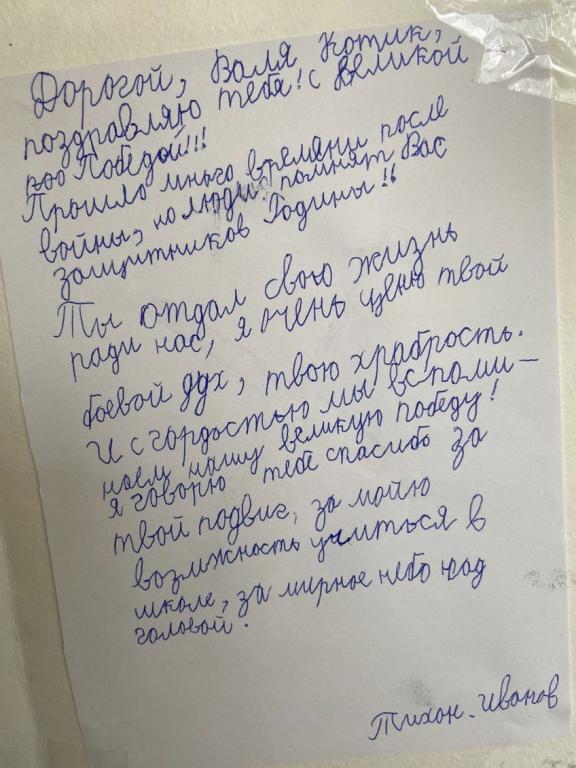 Дорогой, Валя Котик,
поздравляю тебя! с великой
Победой!!!
Прошло много времяни после
войны, но люди помнят Вас
защитников Родины!!
Ты отдал свою жизнь
ради нас, я очень ценю твой
боевой дух, твою храбрость.
И с гордостью мы вспоми-
наем нашу великую победу!
Я говорю тебе спасибо за
твой подвиг, за мойю
возможность учиться в
школе, за мирное небо над
головой.
Тихон. Иванов